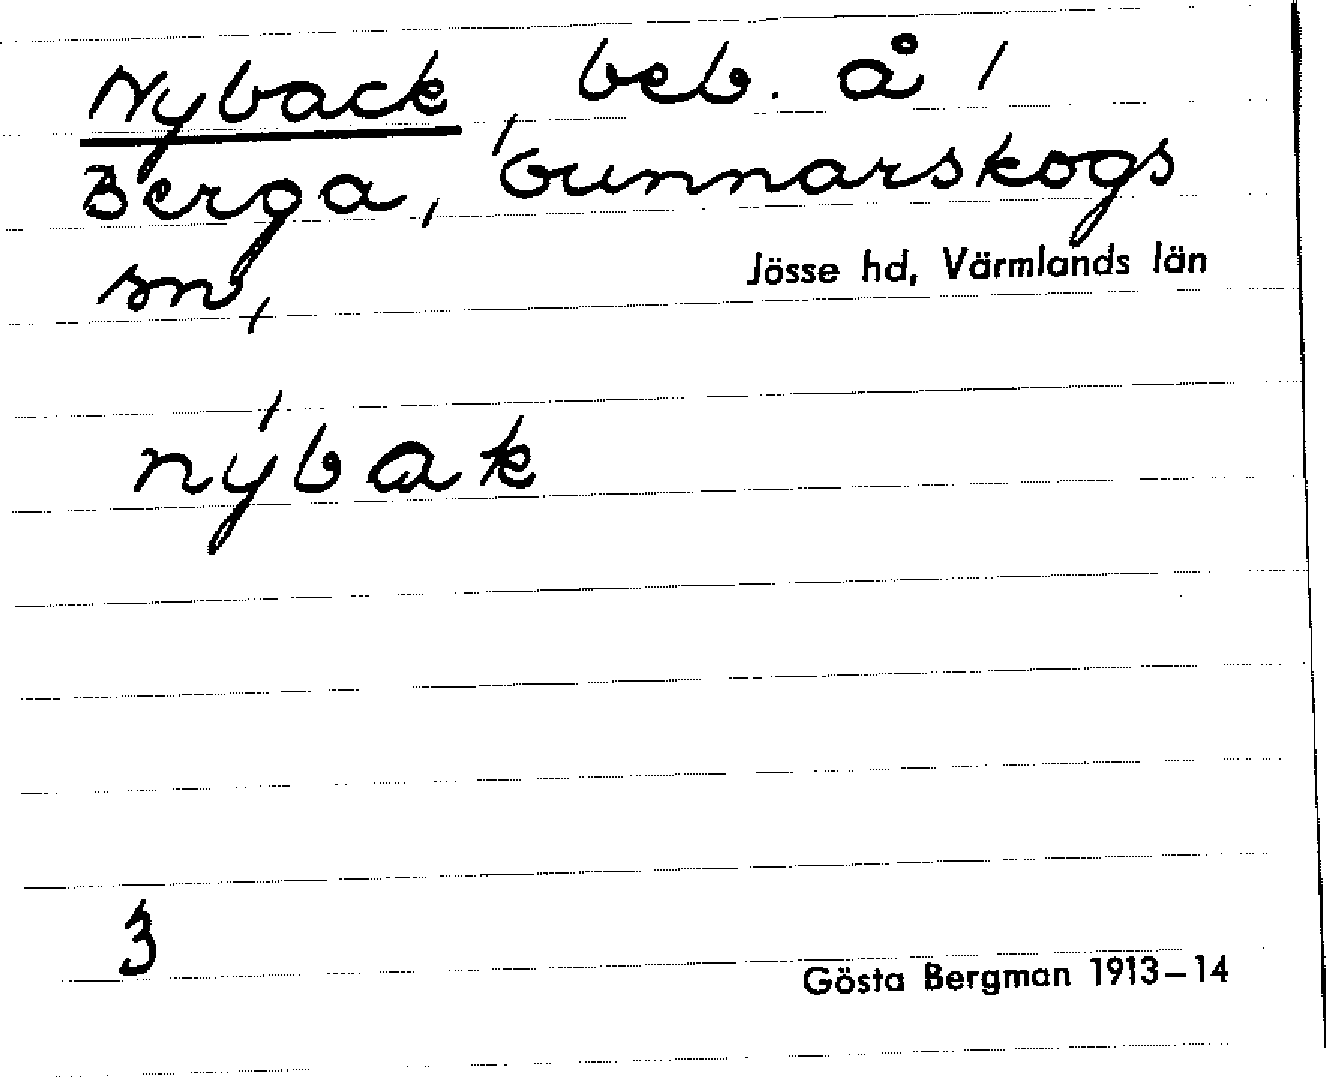 Nyback, beb. å /
Berga, Gunnarskogs
sn,
Jösse hd, Värmlands län
nýbak
3
Gösta Bergman 1913–14